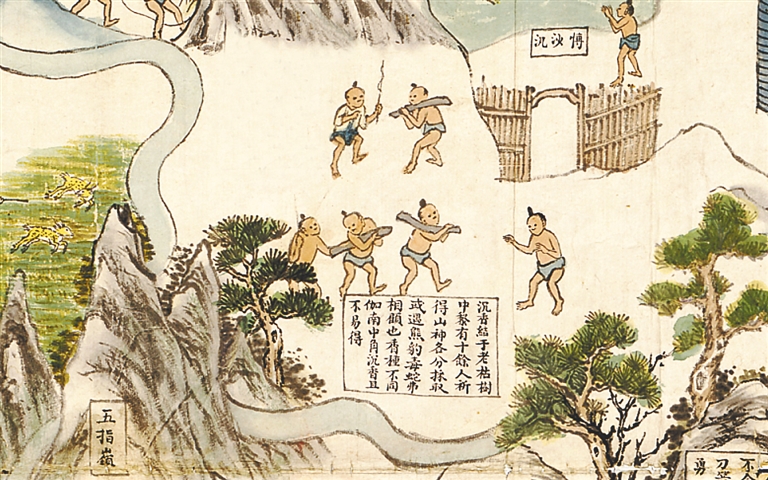 沉沙博
沉香結于老枯樹
中黎有十餘人祈
得山神各分採取
或遇熊豹毒蛇弗
相顧也香種不同
伽南中角沉香且
不易得
五指嶺
不
刀
勇